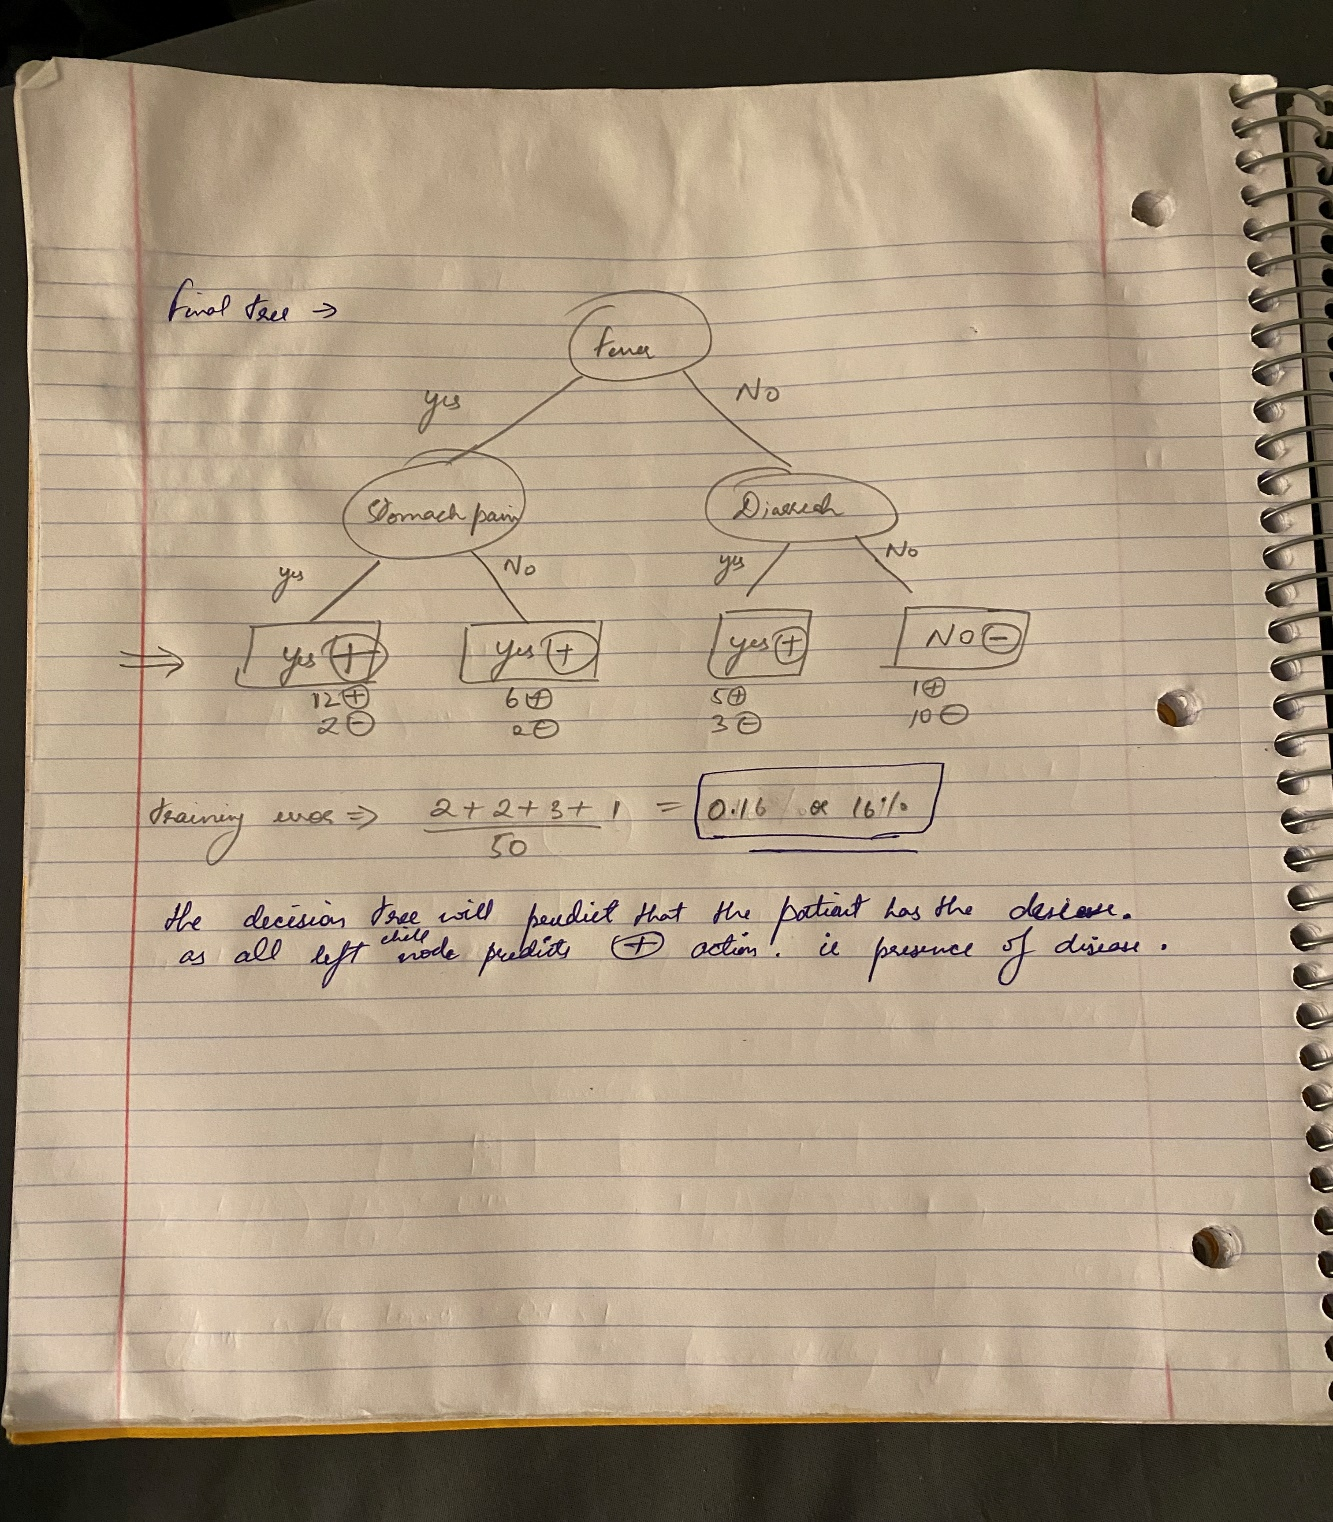 Final tree →
Fever
yes
No
Stomach pain
Diarreah
yes
No
yes
No
⇒ yes ⊕
yes ⊕
yes ⊕
NO ⊖
12 ⊕
6 ⊕
5 ⊕
1 ⊕
2 ⊖
2 ⊖
3 ⊖
10 ⊖
Training error ⇒ 2 + 2 + 3 + 1 / 50 = 0.16 or 16%
the decision tree will predict that the patient has the
as all left child node predicts ⊕ action. ie presence of disease.